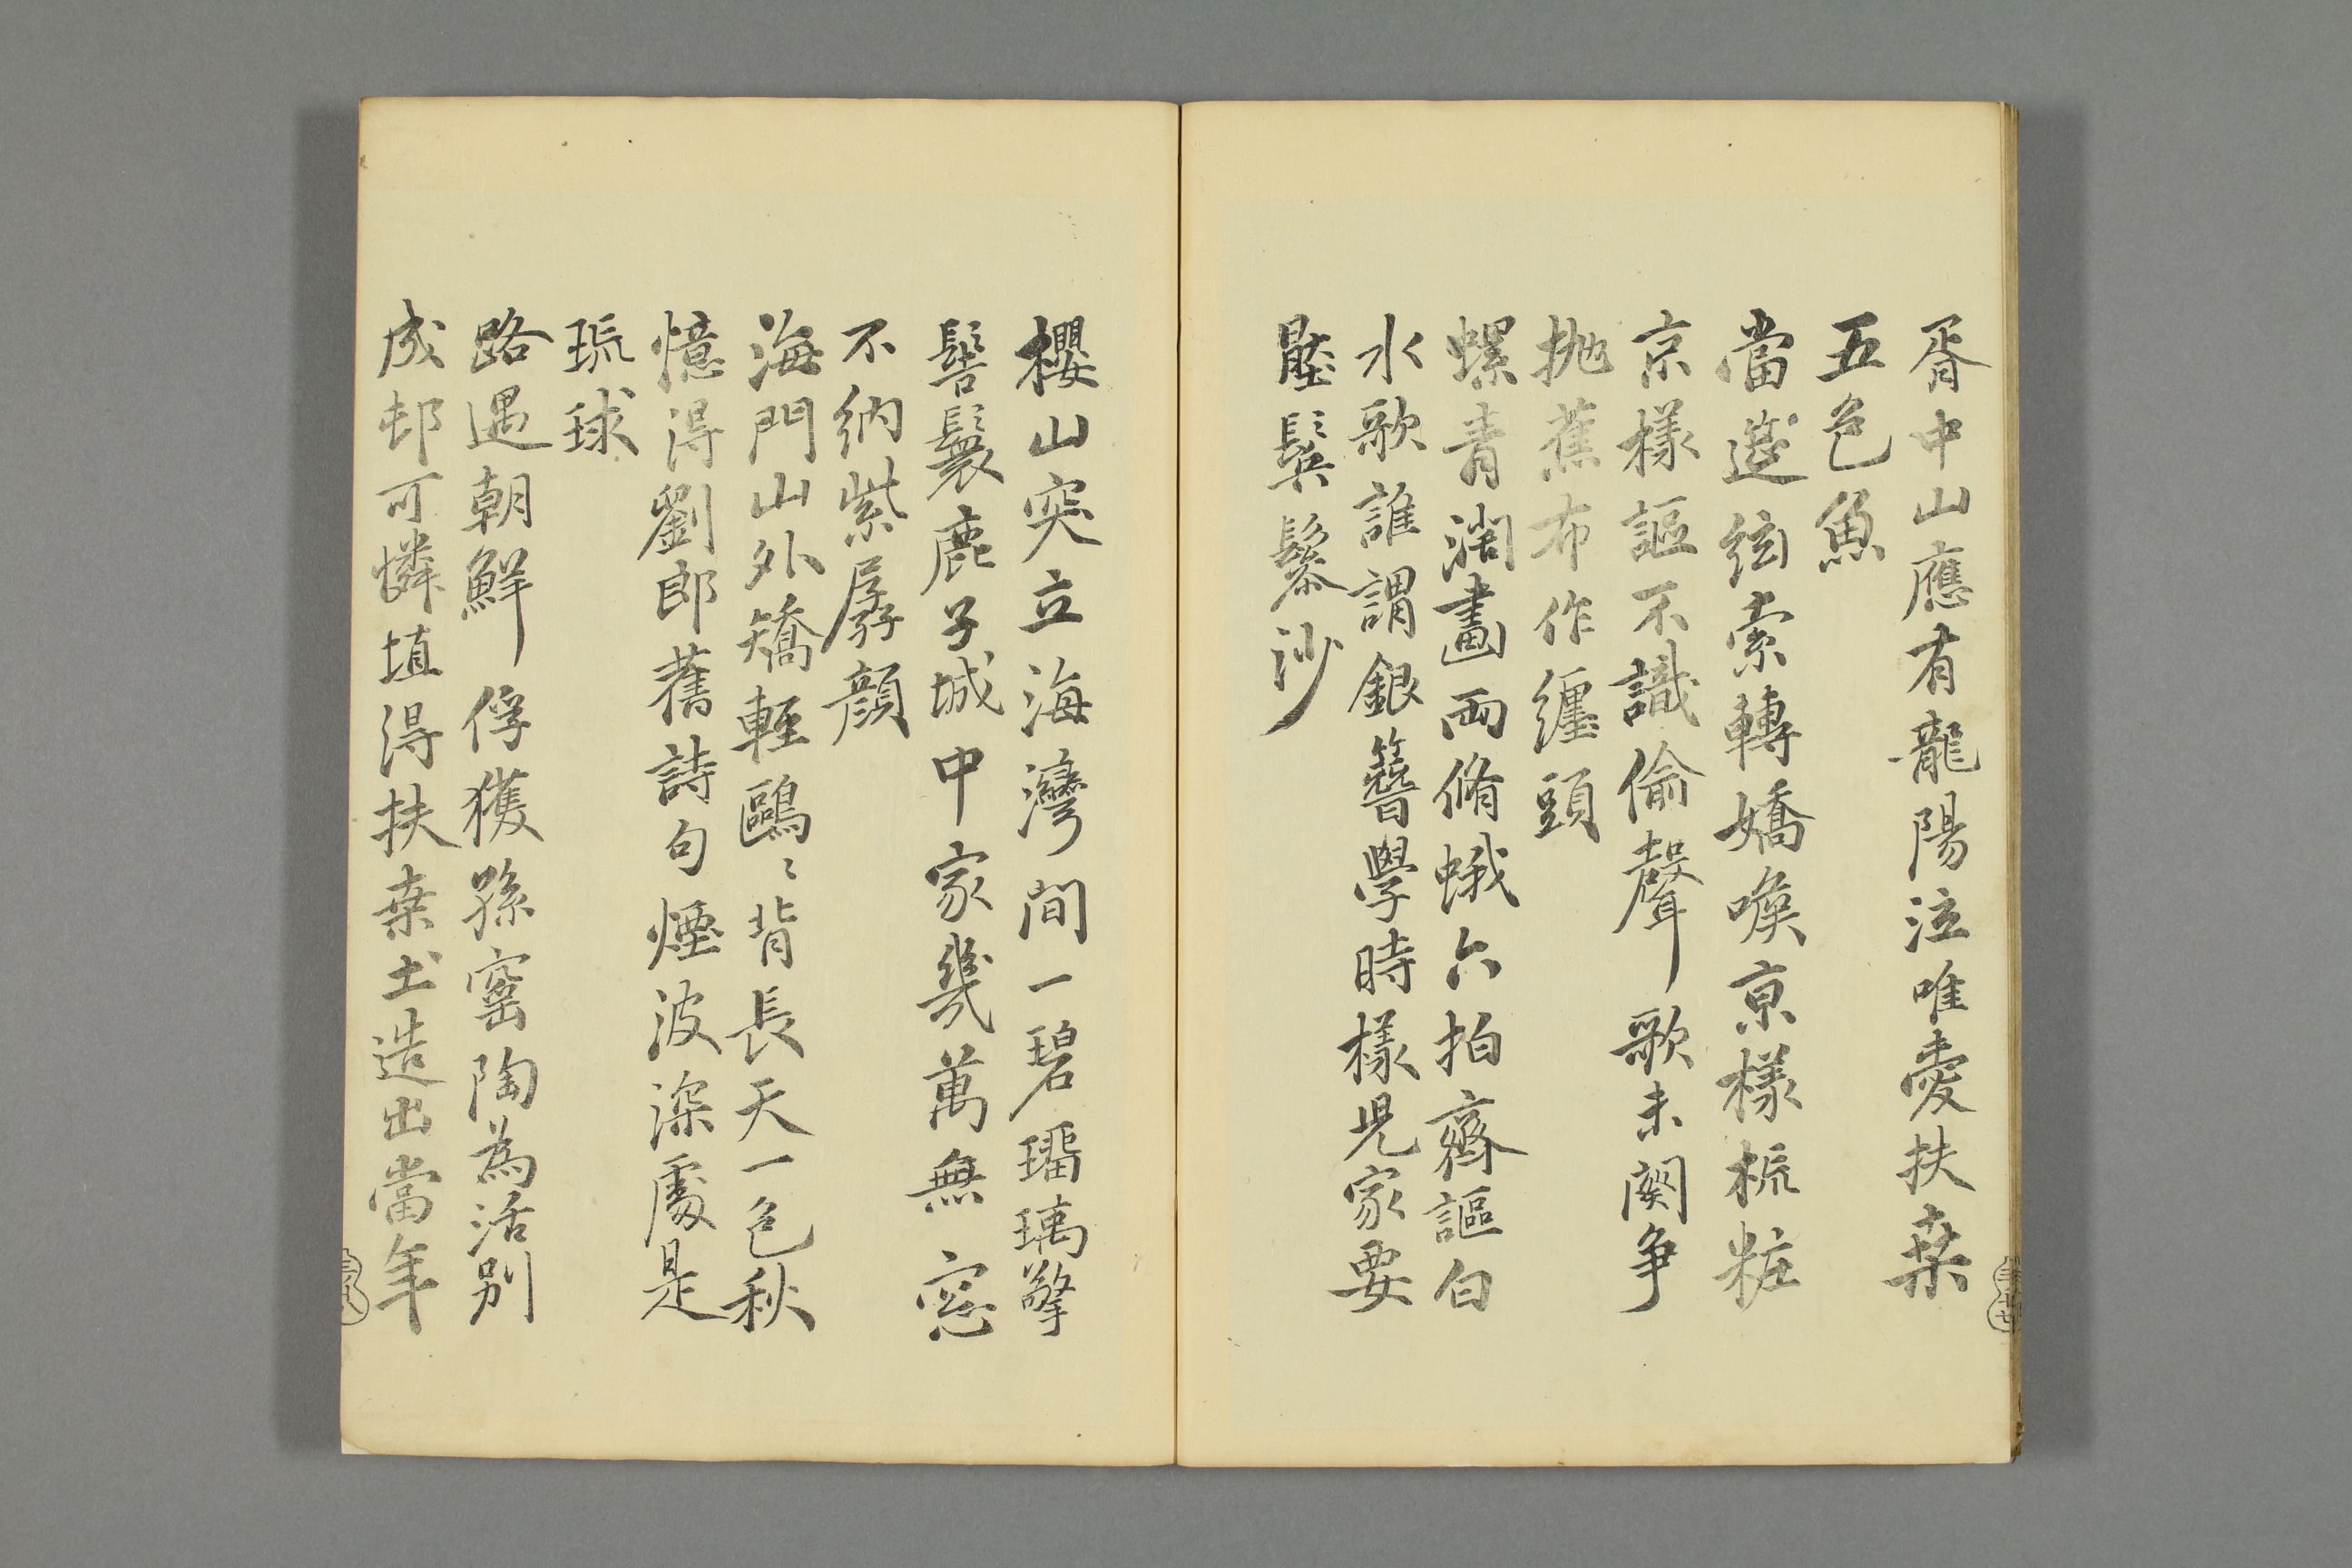 胥中山應有龍陽泣唯愛扶桒
五色魚
當筵絃索轉嬌喉京樣梳粧
京樣謳不識倫聲歌未闋争
抛蕉布作纏頭
螺青濶畫両脩蛾六拍齊謳白
水歌誰謂銀簪學時様児家要
𩬊鬆紗
櫻山突立海灣間一碧瑠璃擎
髻鬟鹿子城中家幾萬無窓
不納紫孱顔
海門山外矯輕鷗〻背長天一色秋
憶得劉郎舊詩句煙波深處是
琉球
路遇朝鮮俘獲孫窰陶為活別
成邨可憐埴得扶桒土造出當年